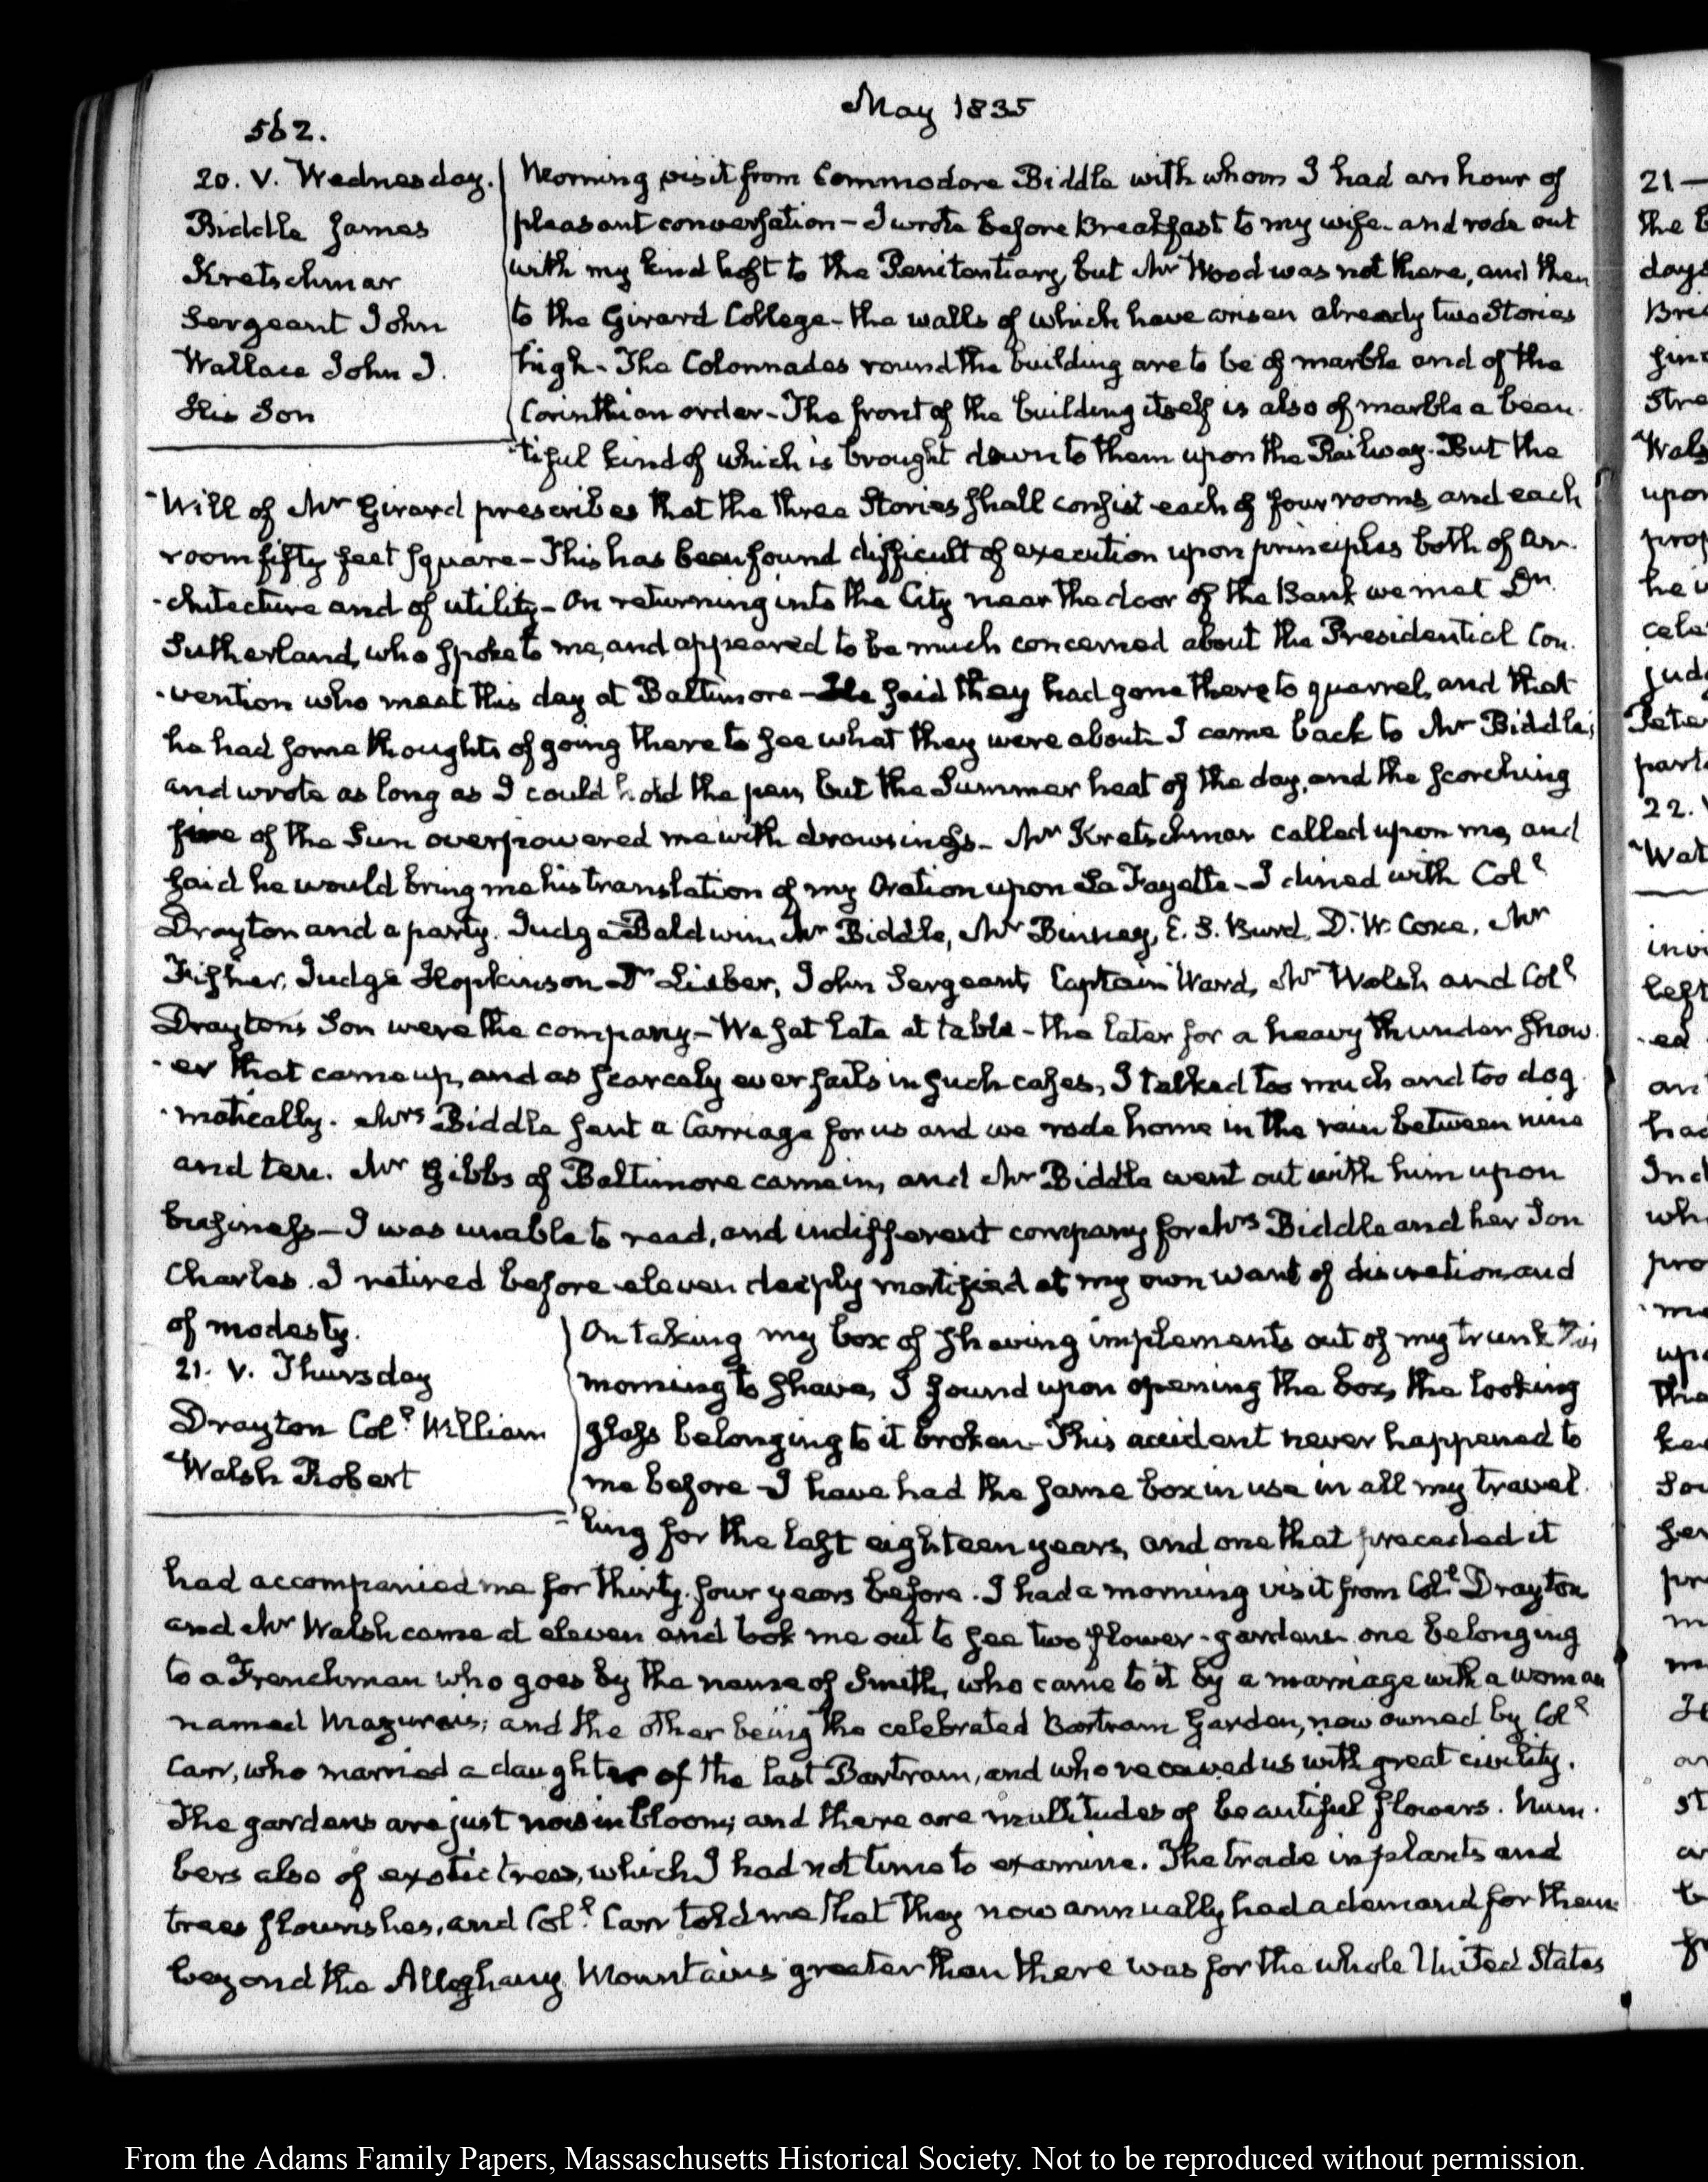 May 1835
562.
20. V. Wednesday.
Biddle James
Kretschmar
Sergeant John
Wallace John J.
His Son
Morning visit from Commodore Biddle with whom I had an hour of
pleasant conversation – I wrote before Breakfast to my wife and rode out
with my kind host to the Penitentiary, but Mr Wood was not there, and then
to the Girard College – the walls of which have arisen already two Stories
high – The Colonnades round the building are to be of marble and of the
Corinthian order – The front of the building itself is also of marble a beau-
-tiful kind of which is brought down to them upon the Railway. But the
Will of Mr Girard prescribes that the three Stories shall consist each of four rooms, and each
room fifty feet square – This has been found difficult of execution upon principles both of ar-
-chitecture and of utility – On returning into the City near the door of the Bank we met Dr.
Sutherland, who spoke to me, and appeared to be much concerned about the Presidential Con-
-vention who meet this day at Baltimore – He said they had gone there to quarrel, and that
he had some thoughts of going there to see what they were about. I came back to Mr Biddle's
and wrote as long as I could hold the pen, but the Summer heat of the day, and the scorching
fire of the Sun overpowered me with drowsiness – Mr Kretschmar called upon me, and
said he would bring me his translation of my Oration upon La Fayette – I dined with Coll
Drayton and a party. Judge Baldwin, Mr Biddle, Mr Binney, E. S. Burd, D. W. Coxe, Mr
Fisher, Judge Hopkinson Dr Lieber, John Sergeant, Captain Ward, Mr Walsh and Coll
Drayton's Son were the company – We sat late at table – the later for a heavy thunder show-
-er that came up, and as scarcely ever fails in such cases, I talked too much and too dog-
-matically. Mrs Biddle sent a Carriage for us and we rode home in the rain between nine
and ten. Mr Gibbs of Baltimore came in, and Mr Biddle went out with him upon
business – I was unable to read, and indifferent company for Mrs Biddle and her Son
Charles. I retired before eleven deeply mortified at my own want of discretion and
of modesty.
21. V. Thursday
Drayton Coll William
Walsh Robert
On taking my box of shaving implements out of my trunk this
morning to shave, I found upon opening the box, the looking
glass belonging to it broken – This accident never happened to
me before – I have had the same box in use in all my travel-
-ling for the last eighteen years, and one that preceded it
had accompanied me for thirty-four years before. I had a morning visit from Coll Drayton
and Mr Walsh came at eleven and took me out to see two flower-gardens one belonging
to a Frenchman who goes by the name of Smith, who came to it by a marriage with a woman
named Mazurais; and the other being the celebrated Bartram Garden, now owned by Coll
Carr, who married a daughter of the last Bartram, and who received us with great civility.
The gardens are just now in bloom, and there are multitudes of beautiful flowers. Num-
bers also of exotic trees, which I had not time to examine. The trade in plants and
trees flourishes, and Coll Carr told me that they now annually had a demand for them
beyond the Alleghany Mountains greater than there was for the whole United States
21 –
22.
From the Adams Family Papers, Massachusetts Historical Society. Not to be reproduced without permission.